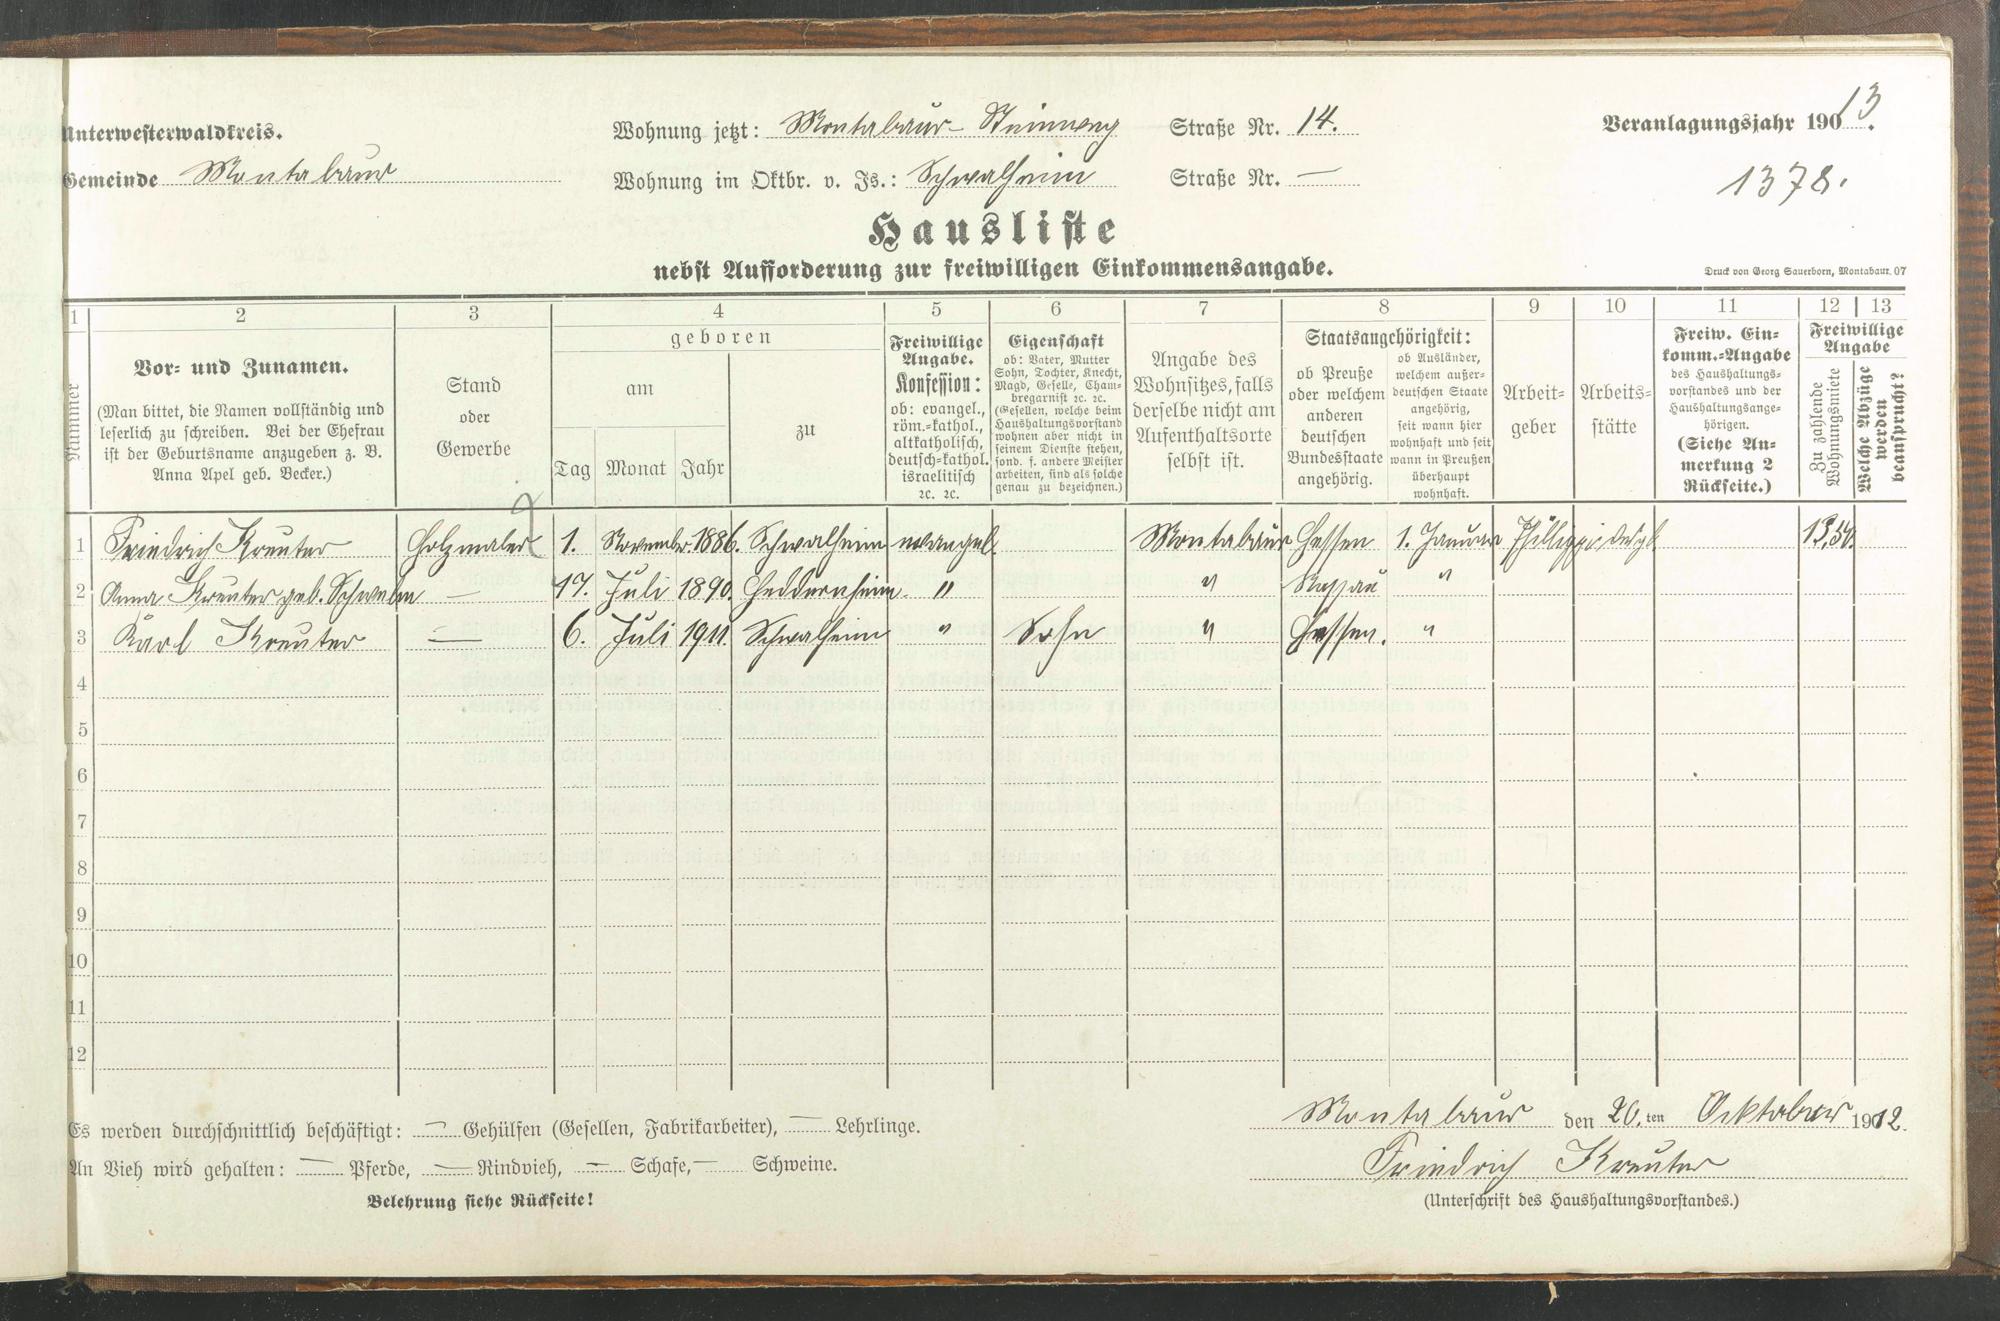 Unterwesterwaldkreis.
Gemeinde Montabaur
Wohnung jetzt: Montabaur- Steinweg Straße Nr. 14.
Wohnung im Oktbr. v. Js.: Schwalheim Straße Nr. —
Veranlagungsjahr 190 13.
1378.
Hausliste
nebst Aufforderung zur freiwilligen Einkommensangabe.
Druck von Georg Sauerborn, Montabaur. 07
1 2 3 4 5 6 7 8 9 10 11 12 13
Nummer
Vor- und Zunamen.
(Man bittet, die Namen vollständig und
leserlich zu schreiben. Bei der Ehefrau
ist der Geburtsname anzugeben z. B.
Anna Apel geb. Becker.)
Stand
oder
Gewerbe
geboren
am
Tag Monat Jahr
zu
Freiwillige
Angabe.
Konfession:
ob: evangel.,
röm.-kathol.,
altkatholisch,
deutsch-kathol.
israelitisch
ꝛc. ꝛc.
Eigenschaft
ob: Vater, Mutter
Sohn, Tochter, Knecht,
Magd, Geselle, Cham-
bregarnist ꝛc. ꝛc.
(Gesellen, welche beim
Haushaltungsvorstand
wohnen aber nicht in
seinem Dienste stehen,
sond. f. andere Meister
arbeiten, sind als solche
genau zu bezeichnen.)
Angabe des
Wohnsitzes, falls
derselbe nicht am
Aufenthaltsorte
selbst ist.
Staatsangehörigkeit:
ob Preuße
oder welchem
anderen
deutschen
Bundesstaate
angehörig.
ob Ausländer,
welchem außer-
deutschen Staate
angehörig,
seit wann hier
wohnhaft und seit
wann in Preußen
überhaupt
wohnhaft.
Arbeit-
geber
Arbeits-
stätte
Freiw. Ein-
komm.-Angabe
des Haushaltungs-
vorstandes und der
Haushaltungsange-
hörigen.
(Siehe An-
merkung 2
Rückseite.)
Freiwillige
Angabe
Zu zahlende
Wohnungsmiete
Welche Abzüge
werden
beansprucht?
1 Friedrich Kreuter Holzmaler 1. November 1886. Schwalheim evangel. Montabaur Hessen 1. Januar Phillippi 13,50.
2 Anna Kreuter geb. Schwalm — 17. Juli 1890. Heddernheim " " Nassau "
3 Karl Kreuter — 6. Juli 1911. Schwalheim " Sohn " Hessen. "
4
5
6
7
8
9
10
11
12
Es werden durchschnittlich beschäftigt: — Gehülfen (Gesellen, Fabrikarbeiter), — Lehrlinge.
An Vieh wird gehalten: — Pferde, — Rindvieh, — Schafe, — Schweine.
Belehrung siehe Rückseite!
Montabaur den 20. ten Ocktober 1912.
Friedrich Kreuter
(Unterschrift des Haushaltungsvorstandes.)